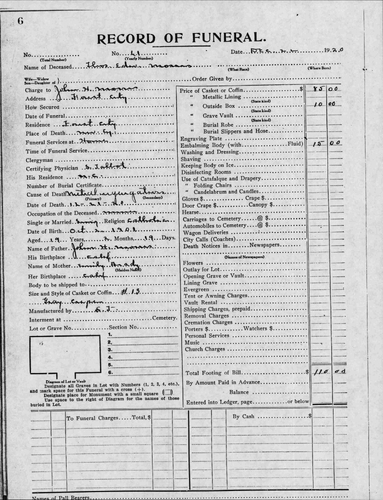 6
RECORD OF FUNERAL.
No. No. 41 Date 192
(Total Number) (Yearly Number)
Name of Deceased
(What Race)
Order Given by
Charge to John H.
Address Forest City
How Secured
Date of Funeral
Residence Forest City
Place of Death
Funeral Services at Home
Time of Funeral Service
Clergyman
Certifying Physician Talbot
His Residence
Number of Burial Certificate
Cause of Death
(Primary) (Secondary)
Date of Death 12-
Occupation of the Deceased
Single or Married Religion Catholic
Date of Birth Oct.
Aged 19 Years, 2 Months, 19 Days
Name of Father John H.
His Birthplace Calif
Name of Mother Emily Brady
(Maiden Name)
Her Birthplace Calif
Body to be shipped to
Size and Style of Casket or Coffin
Manufactured by
Interment at Cemetery.
Lot or Grave No. Section No.
1.
2.
3.
4.
5.
6.
Diagram of Lot or Vault
Designate all Graves in Lot with Numbers (1, 2, 3, 4, etc.),
and mark space for this Funeral with a cross (+).
Designate place for Monument with a small square
Use space to the right of Diagram for the names of those
buried in Lot.
Price of Casket or Coffin $ 85 00
" Metallic Lining
" Outside Box 10 00
" Grave Vault
" Burial Robe
" Burial Slippers and Hose
Engraving Plate
Embalming Body (with Fluid) $ 15 00
Washing and Dressing
Shaving
Keeping Body on Ice
Disinfecting Rooms
Use of Catafalque and Drapery
" Folding Chairs
" Candelabrum and Candles
Gloves $ Crape $
Door Crape $ Canopy $
Hearse
Carriages to Cemetery @ $
Automobiles to Cemetery @ $
Wagon Deliveries
City Calls (Coaches)
Death Notices in Newspapers
(Names of Newspapers)
Flowers
Outlay for Lot
Opening Grave or Vault
Lining Grave
Evergreen
Tent or Awning Charges
Vault Rental
Shipping Charges, prepaid
Removal Charges
Cremation Charges
Porters $ Watchers $
Personal Services
Music
Church Charges
Total Footing of Bill $ 110 00
By Amount Paid in Advance
Balance
Entered into Ledger, page or below
To Funeral Charges Total, $ By Cash $
Names of Pall Bearers